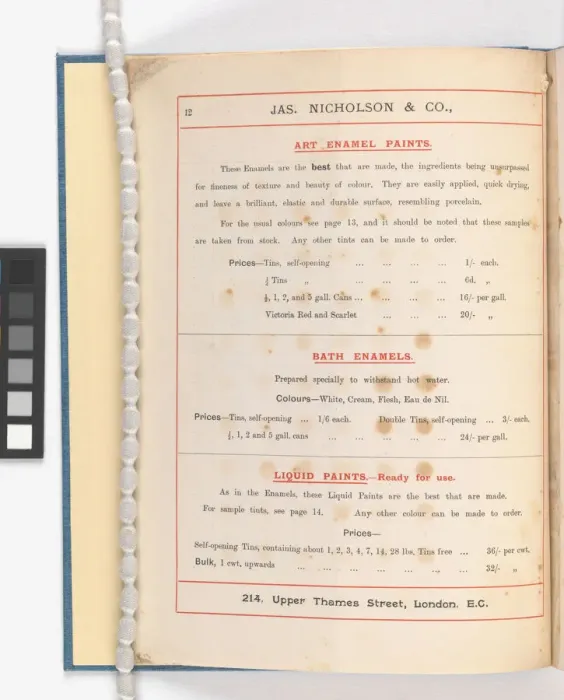 12
JAS. NICHOLSON & CO.,
ART ENAMEL PAINTS.
These Enamels are the best that are made, the ingredients being unsurpassed
for fineness of texture and beauty of colour. They are easily applied, quick drying,
and leave a brilliant, elastic and durable surface, resembling porcelain.
For the usual colours see page 13, and it should be noted that these samples
are taken from stock. Any other tints can be made to order.
Prices—Tins, self-opening ... ... ... ... 1/- each.
Tins „ ... ... ... ... 6d. „
1, 2, and 5 gall. Cans ... ... ... ... 16/- per gall.
Victoria Red and Scarlet ... ... ... 20/- „
BATH ENAMELS.
Prepared specially to withstand hot water.
Colours—White, Cream, Flesh, Eau de Nil.
Prices—Tins, self-opening ... 1/6 each. Double Tins, self-opening ... 3/- each.
1, 2 and 5 gall. cans ... ... ... ... ... 24/- per gall.
LIQUID PAINTS.—Ready for use.
As in the Enamels, these Liquid Paints are the best that are made.
For sample tints, see page 14. Any other colour can be made to order.
Prices—
Self-opening Tins, containing about 1, 2, 3, 4, 7, 14, 28 lbs, Tins free ... 36/- per cwt.
Bulk, 1 cwt. upwards ... ... ... ... ... ... ... 32/- „
214, Upper Thames Street, London, E.C.